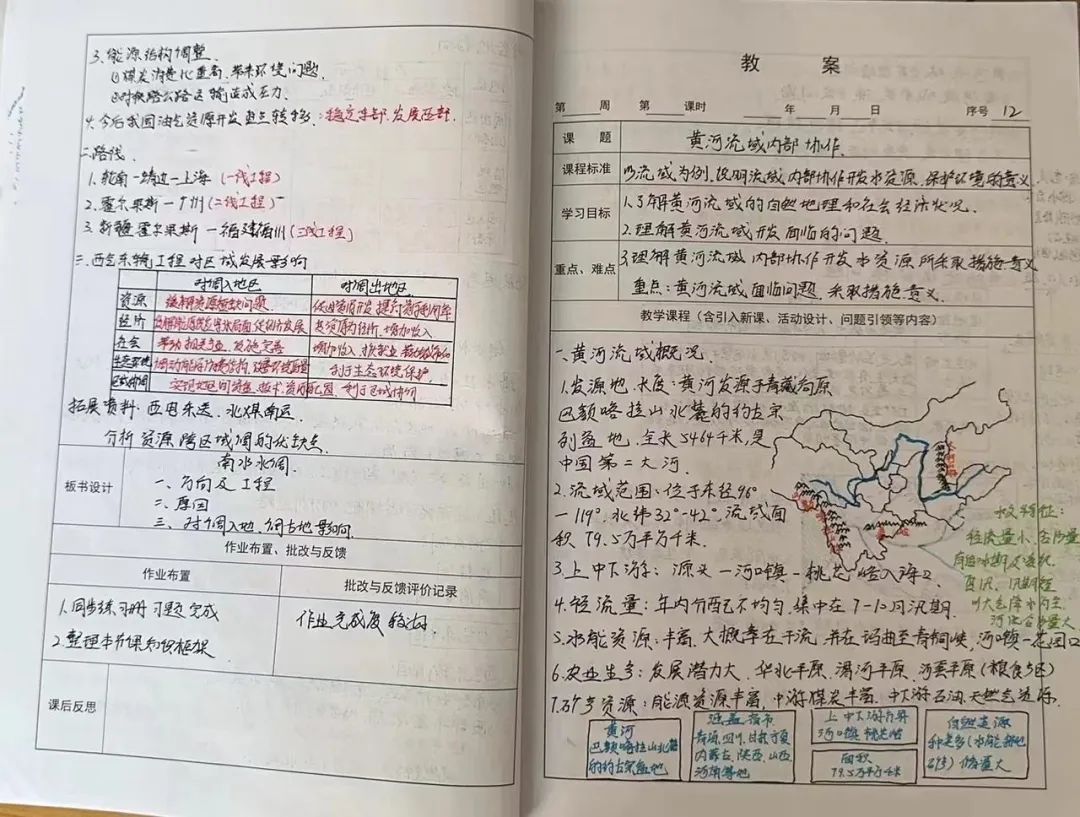 3. 能源结构调整
①煤炭消费比重高, 带来环境问题.
②对铁路公路运输造成压力.
4. 今后我国油气资源开发重点转移: 稳定东部, 发展西部.
二. 路线.
1. 轮南—靖边—上海 (一线工程)
2. 霍尔果斯—广州 (二线工程)
3. 新疆霍尔果斯—福建福州 (三线工程)
三. 西气东输工程对区域发展影响
对调入地区 对调出地区
资源 缓解资源短缺问题.
经济
社会
生态环境 利于生态环境保护.
拓展资料: 西电东送. 北煤南运.
分析资源跨区域调的优缺点.
板书设计
南水北调.
一、方向及工程
二、原因
三、对调入地、调出地影响.
作业布置、批改与反馈
作业布置 批改与反馈评价记录
1. 同步练习册习题完成
2. 整理本节课知识框架.
作业完成度较好.
课后反思
教 案
第 周 第 课时 年 月 日 序号 12
课 题 黄河流域内部协作.
课程标准 以流域为例, 说明流域内部协作开发水资源、保护环境的意义
学习目标 1. 了解黄河流域的自然地理和社会经济状况.
2. 理解黄河流域开发面临的问题.
重点、难点 3. 理解黄河流域内部协作开发水资源所采取措施、意义
重点: 黄河流域面临问题、采取措施、意义.
教学课程（含引入新课、活动设计、问题引领等内容）
一、黄河流域概况.
1. 发源地、长度: 黄河发源于青藏高原
巴颜喀拉山北麓的约古宗
列盆地. 全长5464千米, 是
中国第二大河.
2. 流域范围: 位于东经96°
—119°, 北纬32°-42°, 流域面
积79.5万平方千米.
3. 上中下游: 源头—河口镇—桃花峪入海口.
4. 径流量: 年内分配不均匀. 集中在7-10月汛期.
5. 水能资源: 丰富. 大概率在干流, 并在玛曲至青铜峡, 河口镇—花园口
6. 农业生产: 发展潜力大. 华北平原、渭河平原、河套平原 (粮食产区)
7. 矿产资源: 能源资源丰富, 中游煤炭丰富. 中下游石油、天然气资源.
水文特征:
径流量小、含沙量
黄河
巴颜喀拉山北麓
的约古宗列盆地
流经省市
青海, 四川, 甘肃, 宁夏
内蒙古, 陕西, 山西
河南等地
上中下游分界
河口镇, 桃花峪
面积
79.5万平方千米
自然资源
储量大